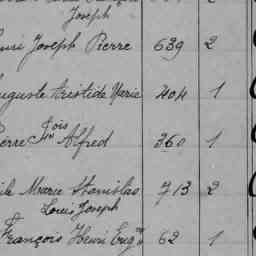 Joseph
Henri Joseph Pierre 639 2
Auguste Aristide Marie 404 1
Pierre Fois Mie Alfred 360 1
Emile Marie Stanislas 713 2
Louis Joseph
François Henri Eugne 62 1